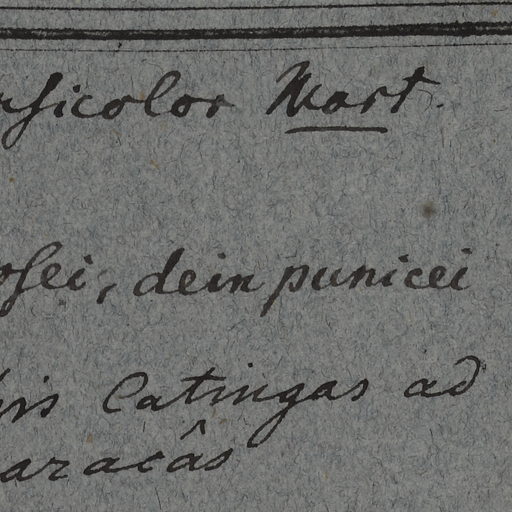 rsicolor Mart.
osei, dein punicei
is Catingas ad
aracâs